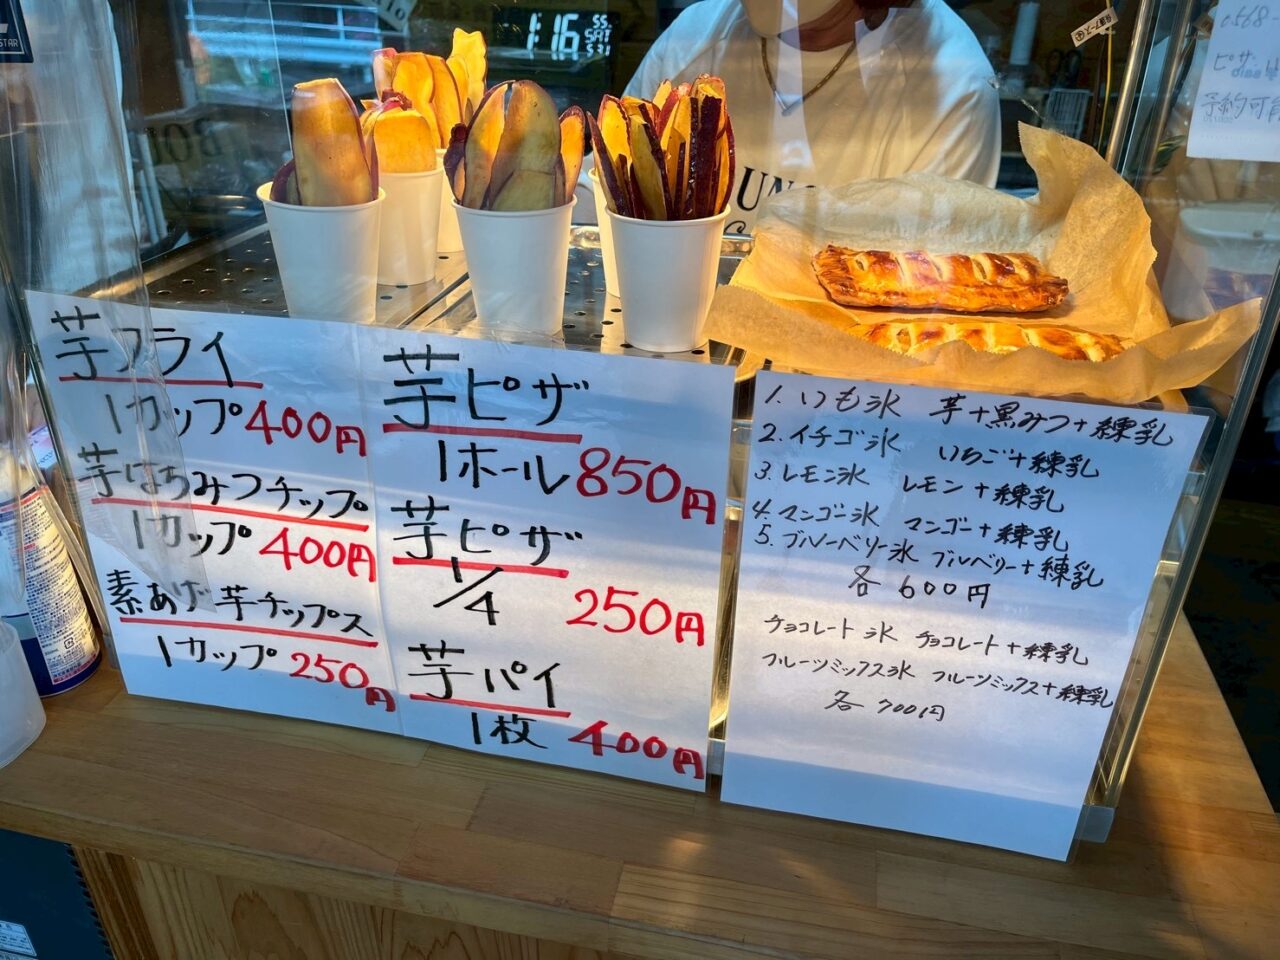 STAR
1:16
55
SAT
5.31
UN
芋フライ
1カップ400円
芋はちみつチップ
1カップ400円
素あげ芋チップス
1カップ250円
芋ピザ
1ホール850円
芋ピザ
1/4 250円
芋パイ
1枚 400円
1. いつも氷 芋+黒みつ+練乳
2. イチゴ氷 いちご+練乳
3. レモン氷 レモン+練乳
4. マンゴー氷 マンゴー+練乳
5. ブルーベリー氷 ブルベリー+練乳
各 600円
チョコレート氷 チョコレート+練乳
フルーツミックス氷 フルーツミックス+練乳
各 700円
0568-
ピザ
予約可